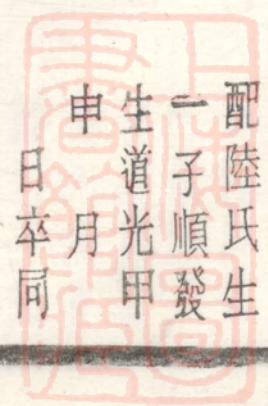 配陸氏生
一子順發
生道光甲
申　月
日卒同